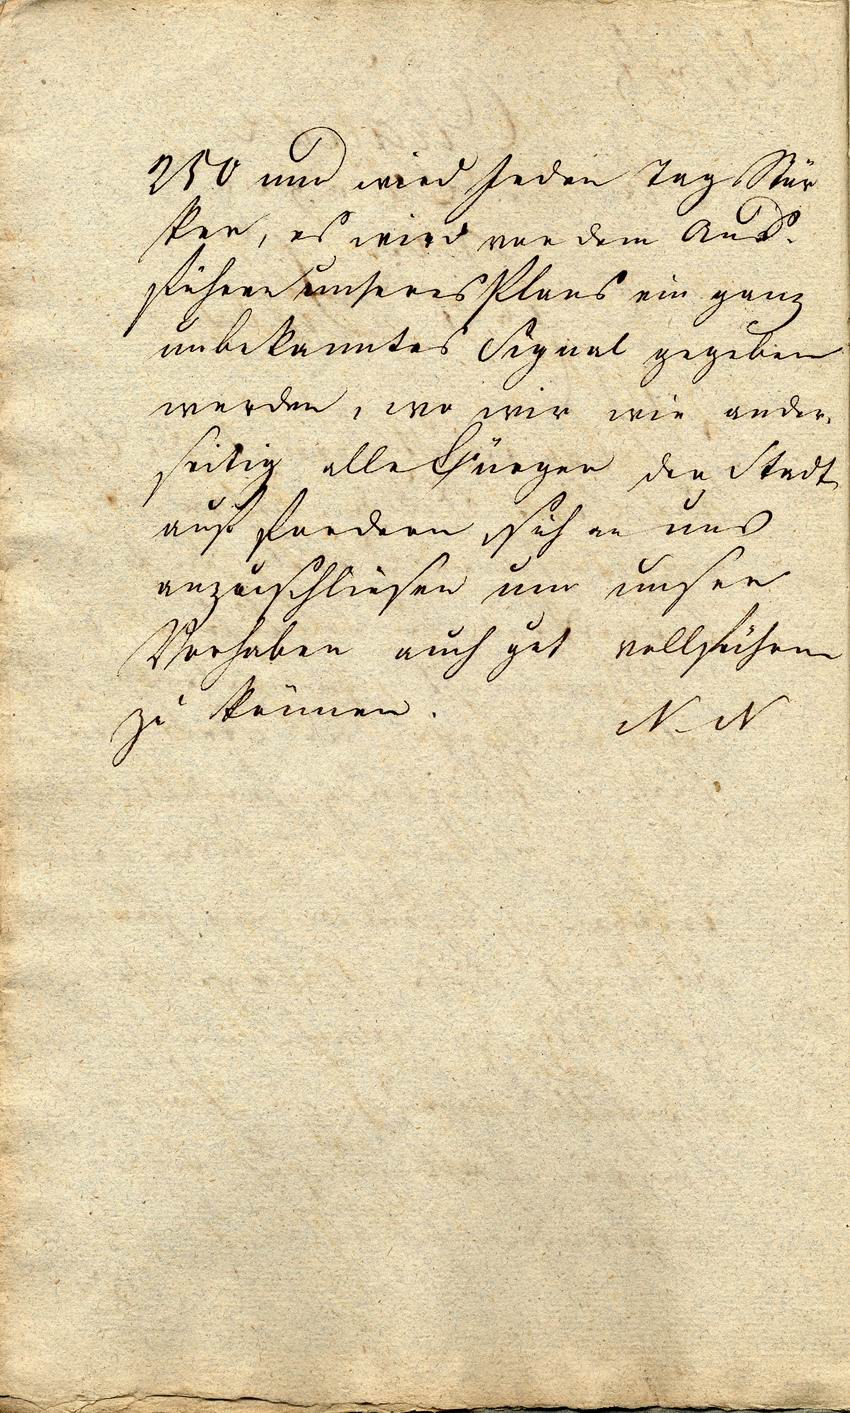 250 und wird Jeden Tag Stär
ker, es wird vor dem Aus-
führen unseres Plans ein ganz
unbekanntes Signal gegeben
werden, wo wir wie ander-
seitig alle Bürger der Stadt
auf fordern sich an uns
anzuschliesen um unser
Vorhaben auch gut vollführen
zu können. N. N